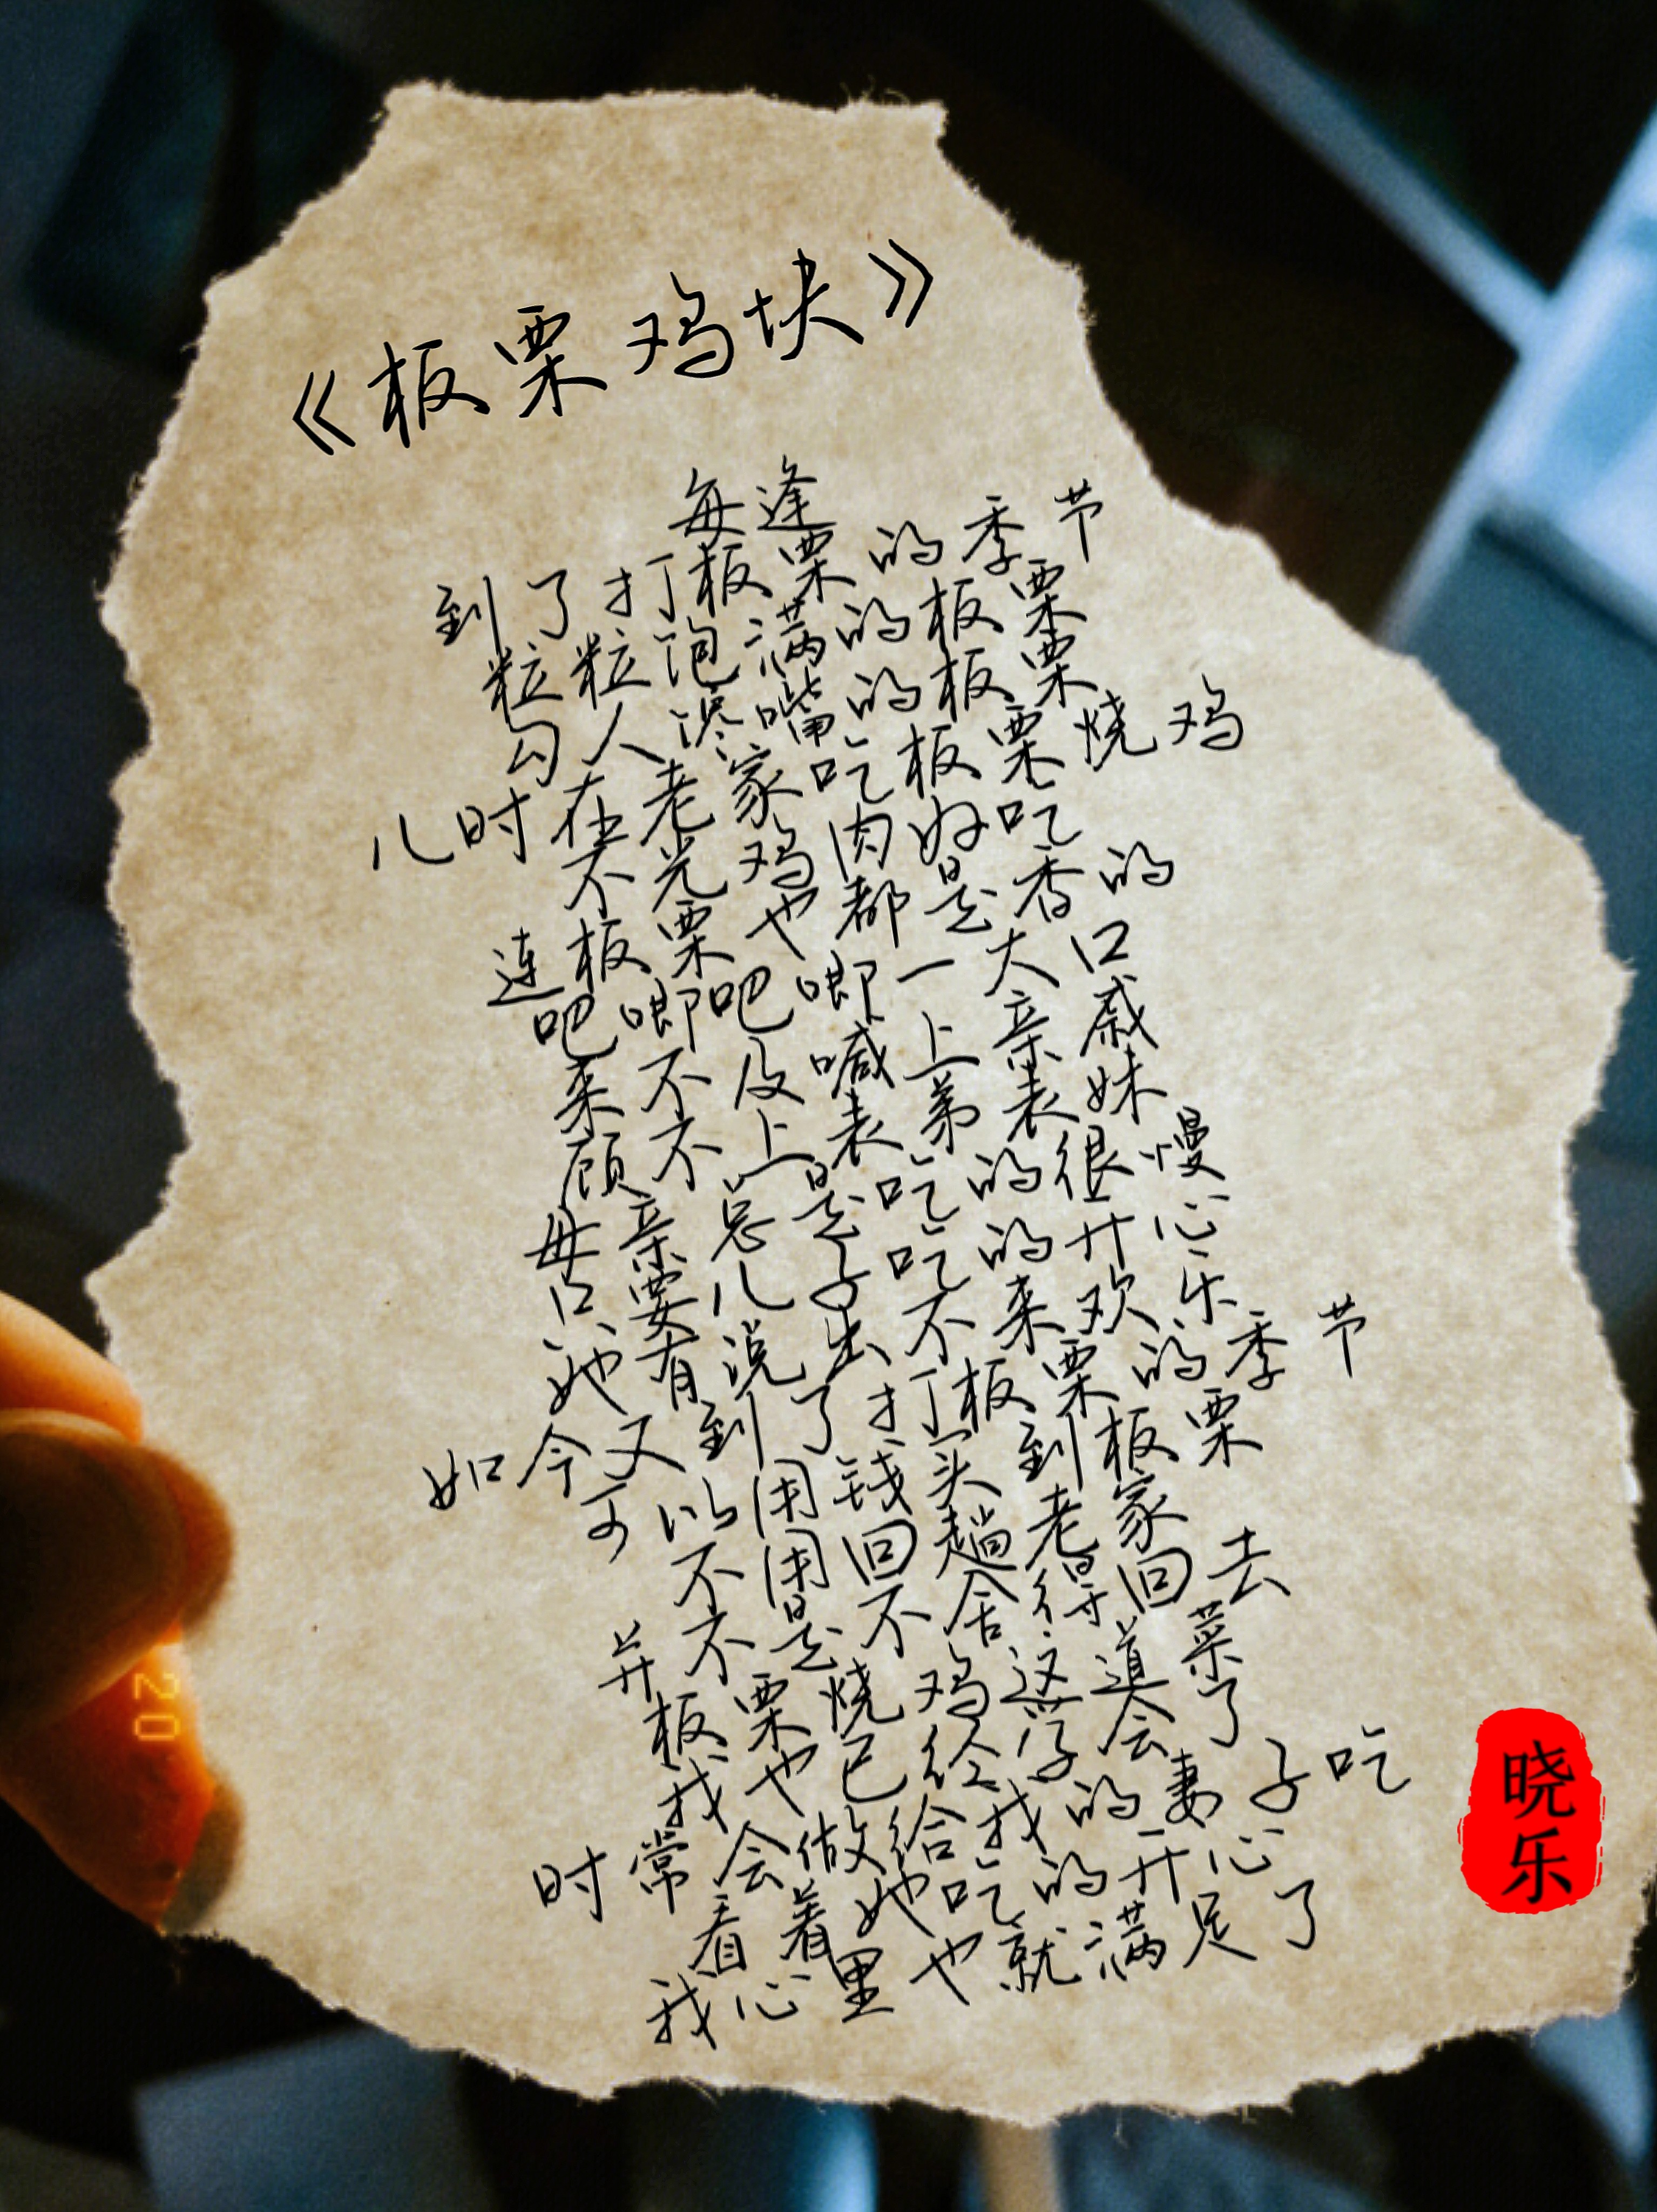 《板栗鸡块》
每逢
到了打板栗的季节
粒粒饱满的板栗
勾人馋嘴的板栗
儿时在老家吃板栗烧鸡
不光鸡肉好吃
连板栗也都是香的
吧唧吧唧一大口
来不及喊上亲戚
顾不上表弟表妹
母亲总是吃的很慢
只要儿子吃的开心
她有说出不来欢乐
如今又到了打板栗的季节
可以用钱买到板栗
不用回趟老家
并不是不舍得回去
板栗烧鸡这道菜
我也已经学会了
时常会做给我的妻子吃
看着她吃的开心
我心里也就满足了
晓乐
20